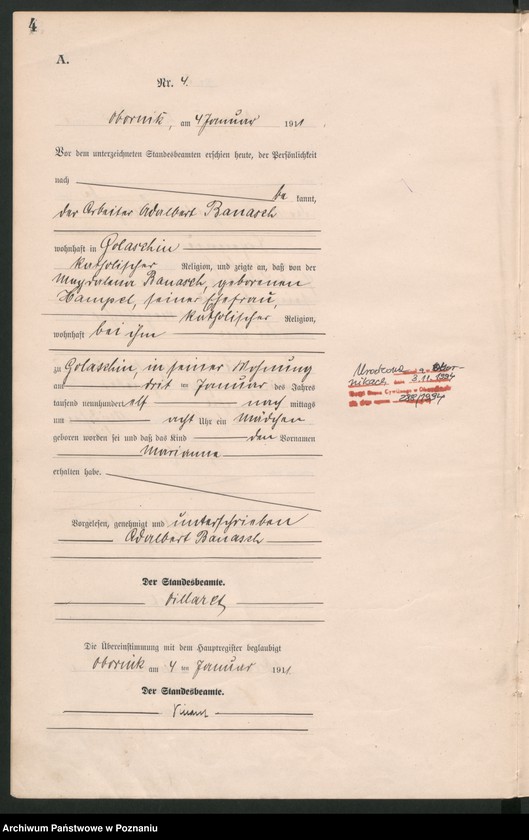 4
A.
Nr. 4.
Obornik, am 4 Januar 1911
Vor dem unterzeichneten Standesbeamten erschien heute, der Persönlichkeit
nach
be kannt,
der Arbeiter Adalbert Banasch
wohnhaft in Golaschin
katholischer Religion, und zeigte an, daß von der
Magdalena Banasch, geborenen
Hampel, seiner Ehefrau,
katholischer Religion,
wohnhaft bei ihm
zu Golaschin, in seiner Wohnung
am drit ten Januar des Jahres
tausend neunhundert elf nach mittags
um acht Uhr ein Mädchen
geboren worden sei und daß das Kind den Vornamen
Marianne
erhalten habe.
Vorgelesen, genehmigt und unterschrieben
Adalbert Banasch
Der Standesbeamte.
Die Übereinstimmung mit dem Hauptregister beglaubigt
Obornik am 4 ten Januar 1911
Der Standesbeamte.
3.11.1994
288/1994
Archiwum Państwowe w Poznaniu